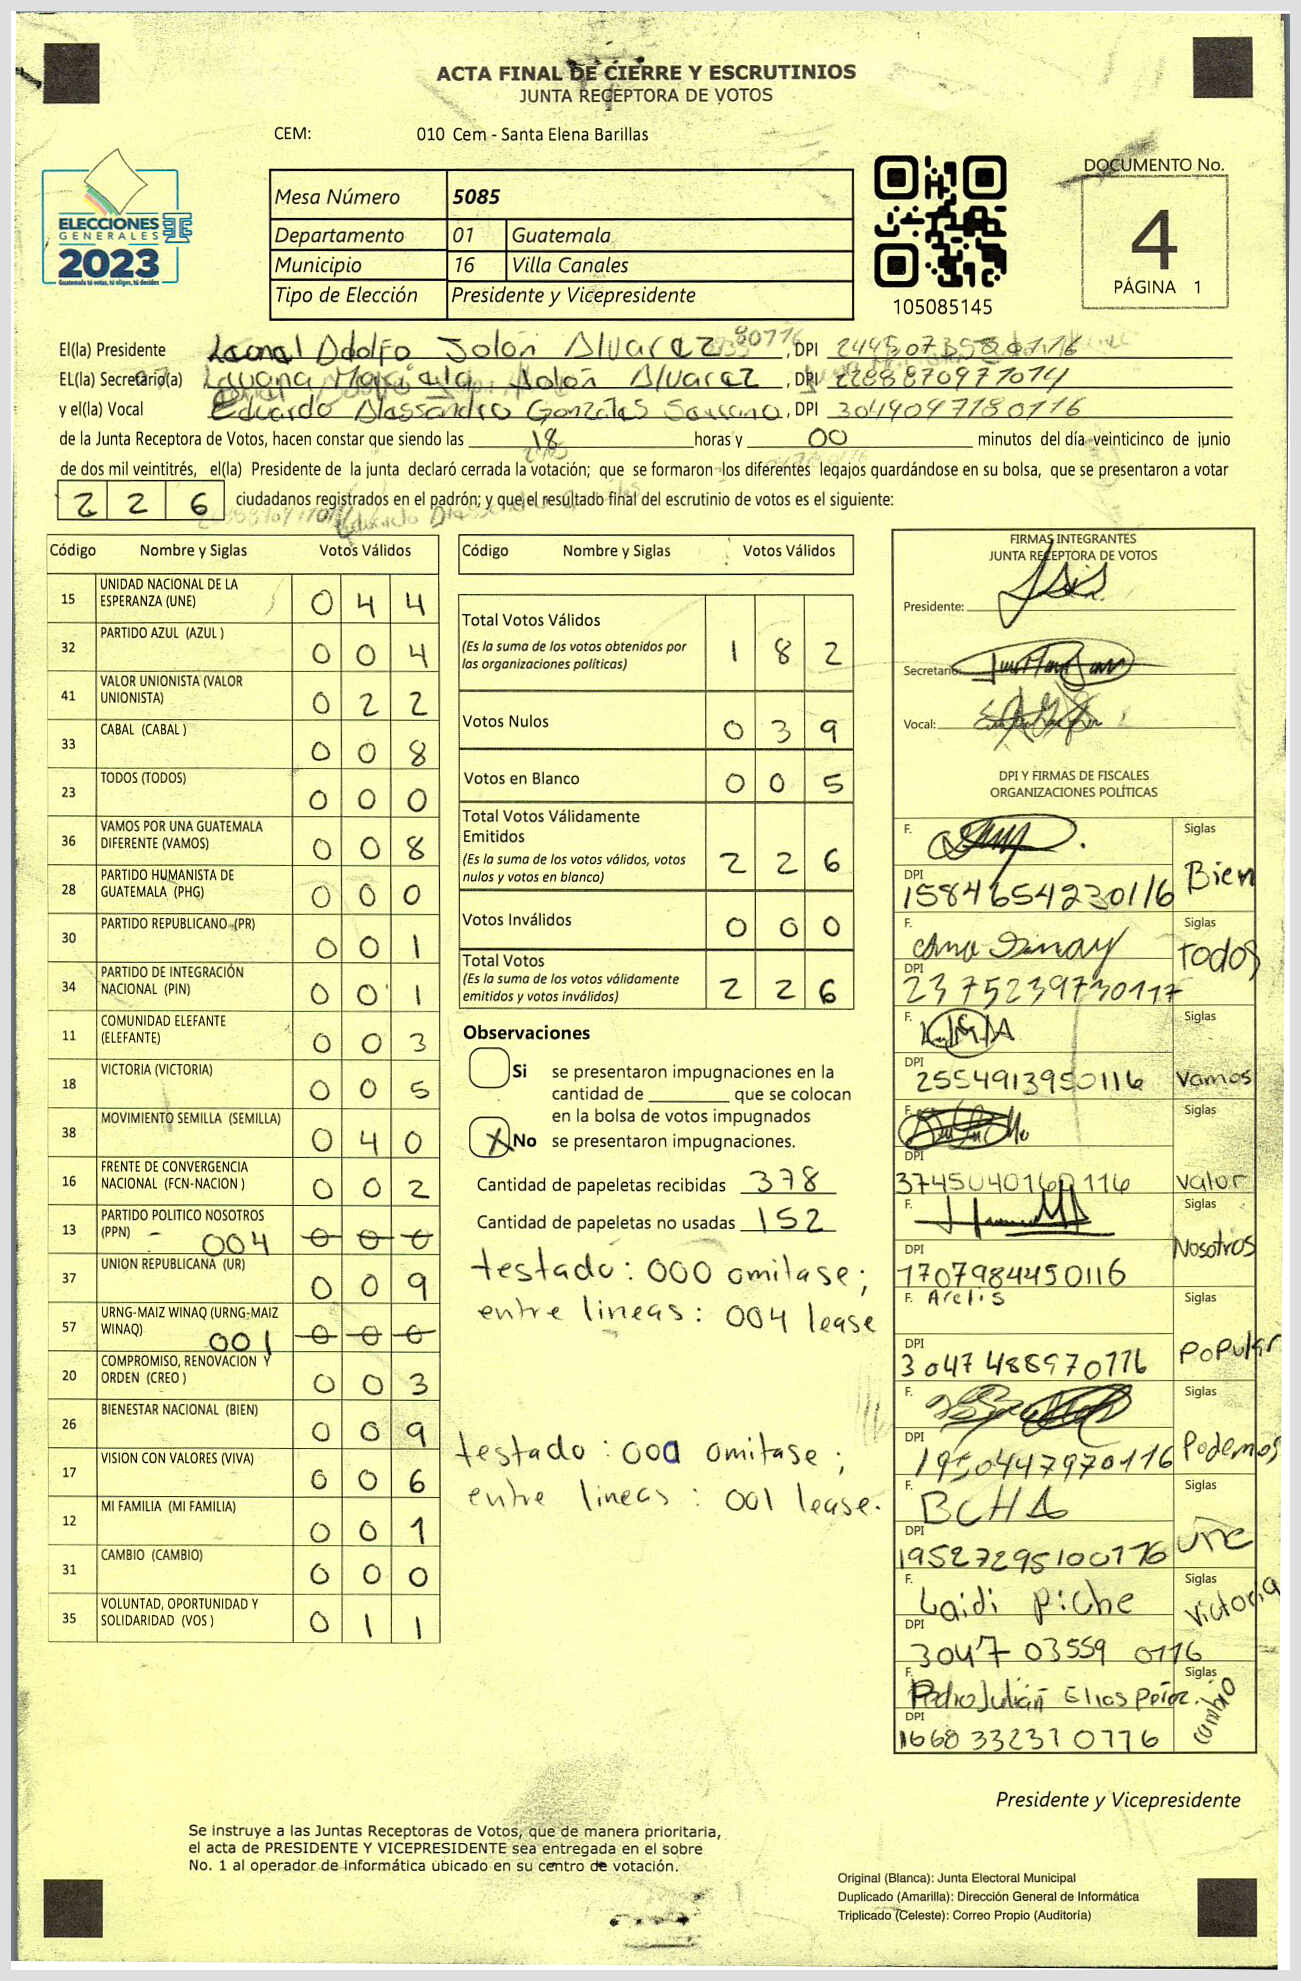 ACTA FINAL DE CIERRE Y ESCRUTINIOS
JUNTA RECEPTORA DE VOTOS
CEM: 010 Cem - Santa Elena Barillas
ELECCIONES
GENERALES
2023
Guatemala tú votas, tú eliges, tú decides
Mesa Número 5085
Departamento 01 Guatemala
Municipio 16 Villa Canales
Tipo de Elección Presidente y Vicepresidente
105085145
DOCUMENTO No.
4
PÁGINA 1
El(la) Presidente Leonel Adolfo Solón Alvarez, DPI
EL(la) Secretario(a) Mariela Solón Alvarez, DPI 2288870971014
y el(la) Vocal Eduardo Alessandro Gonzales Serrano, DPI 3049097180116
de la Junta Receptora de Votos, hacen constar que siendo las 18 horas y 00 minutos del día veinticinco de junio
de dos mil veintitrés, el(la) Presidente de la junta declaró cerrada la votación; que se formaron los diferentes legajos quardándose en su bolsa, que se presentaron a votar
226 ciudadanos registrados en el padrón; y que el resultado final del escrutinio de votos es el siguiente:
Código Nombre y Siglas Votos Válidos
15 UNIDAD NACIONAL DE LA ESPERANZA (UNE) 044
32 PARTIDO AZUL (AZUL ) 004
41 VALOR UNIONISTA (VALOR UNIONISTA) 022
33 CABAL (CABAL ) 008
23 TODOS (TODOS) 000
36 VAMOS POR UNA GUATEMALA DIFERENTE (VAMOS) 008
28 PARTIDO HUMANISTA DE GUATEMALA (PHG) 000
30 PARTIDO REPUBLICANO (PR) 001
34 PARTIDO DE INTEGRACIÓN NACIONAL (PIN) 001
11 COMUNIDAD ELEFANTE (ELEFANTE) 003
18 VICTORIA (VICTORIA) 005
38 MOVIMIENTO SEMILLA (SEMILLA) 040
16 FRENTE DE CONVERGENCIA NACIONAL (FCN-NACION ) 002
13 PARTIDO POLITICO NOSOTROS (PPN) - 004 000
37 UNION REPUBLICANA (UR) 009
57 URNG-MAIZ WINAQ (URNG-MAIZ WINAQ) 001 000
20 COMPROMISO, RENOVACION Y ORDEN (CREO ) 003
26 BIENESTAR NACIONAL (BIEN) 009
17 VISION CON VALORES (VIVA) 006
12 MI FAMILIA (MI FAMILIA) 001
31 CAMBIO (CAMBIO) 000
35 VOLUNTAD, OPORTUNIDAD Y SOLIDARIDAD (VOS ) 011
Código Nombre y Siglas Votos Válidos
Total Votos Válidos 182
(Es la suma de los votos obtenidos por
las organizaciones políticas)
Votos Nulos 039
Votos en Blanco 005
Total Votos Válidamente
Emitidos 226
(Es la suma de los votos válidos, votos
nulos y votos en blanco)
Votos Inválidos 000
Total Votos 226
(Es la suma de los votos válidamente
emitidos y votos inválidos)
Observaciones
Si se presentaron impugnaciones en la
cantidad de ________ que se colocan
en la bolsa de votos impugnados
X No se presentaron impugnaciones.
Cantidad de papeletas recibidas 378
Cantidad de papeletas no usadas 152
testado: 000 omitase;
entre lineas: 004 lease
testado: 000 omitase;
entre lineas: 001 lease.
FIRMAS INTEGRANTES
JUNTA RECEPTORA DE VOTOS
Presidente:
Secretario:
Vocal:
DPI Y FIRMAS DE FISCALES
ORGANIZACIONES POLÍTICAS
F. Siglas
DPI 1584654230116 Bien
F. Siglas
DPI 2375239730117 todos
F. Siglas
DPI 2554913950116 vamos
F. Siglas
DPI 3745040160116 valor
F. Siglas
DPI 1707984450116 Nosotros
F. Arelis Siglas
DPI 3047488970116 Popular
F. Siglas
DPI 1950447970116 Podemos
F. BCHA Siglas
DPI 19527295100116 une
F. Laidi Piche Siglas
DPI 3047 03559 0116 Victoria
F. Pedro Julián Elias Siglas
DPI 1668 33237 0116 cambio
Presidente y Vicepresidente
Se instruye a las Juntas Receptoras de Votos, que de manera prioritaria,
el acta de PRESIDENTE Y VICEPRESIDENTE sea entregada en el sobre
No. 1 al operador de informática ubicado en su centro de votación.
Original (Blanca): Junta Electoral Municipal
Duplicado (Amarilla): Dirección General de Informática
Triplicado (Celeste): Correo Propio (Auditoría)